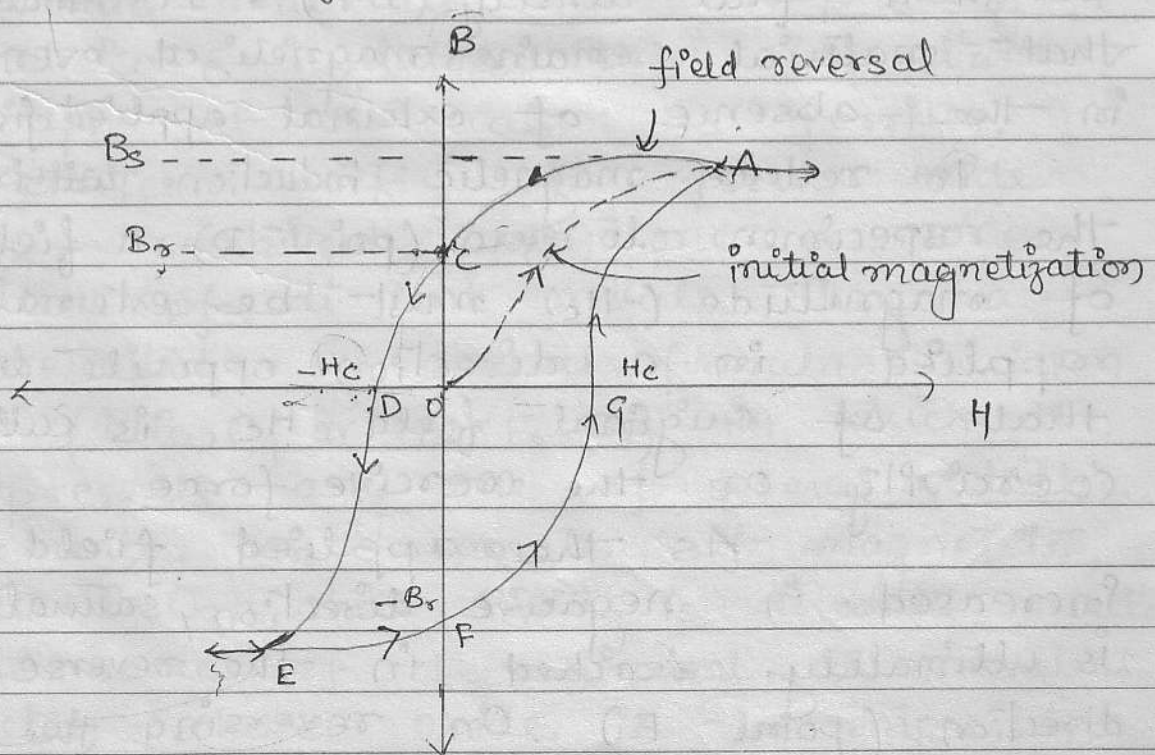 B
field reversal
Bs
A
Br
C
initial magnetization
-Hc
Hc
D
O
G
H
-Br
F
E